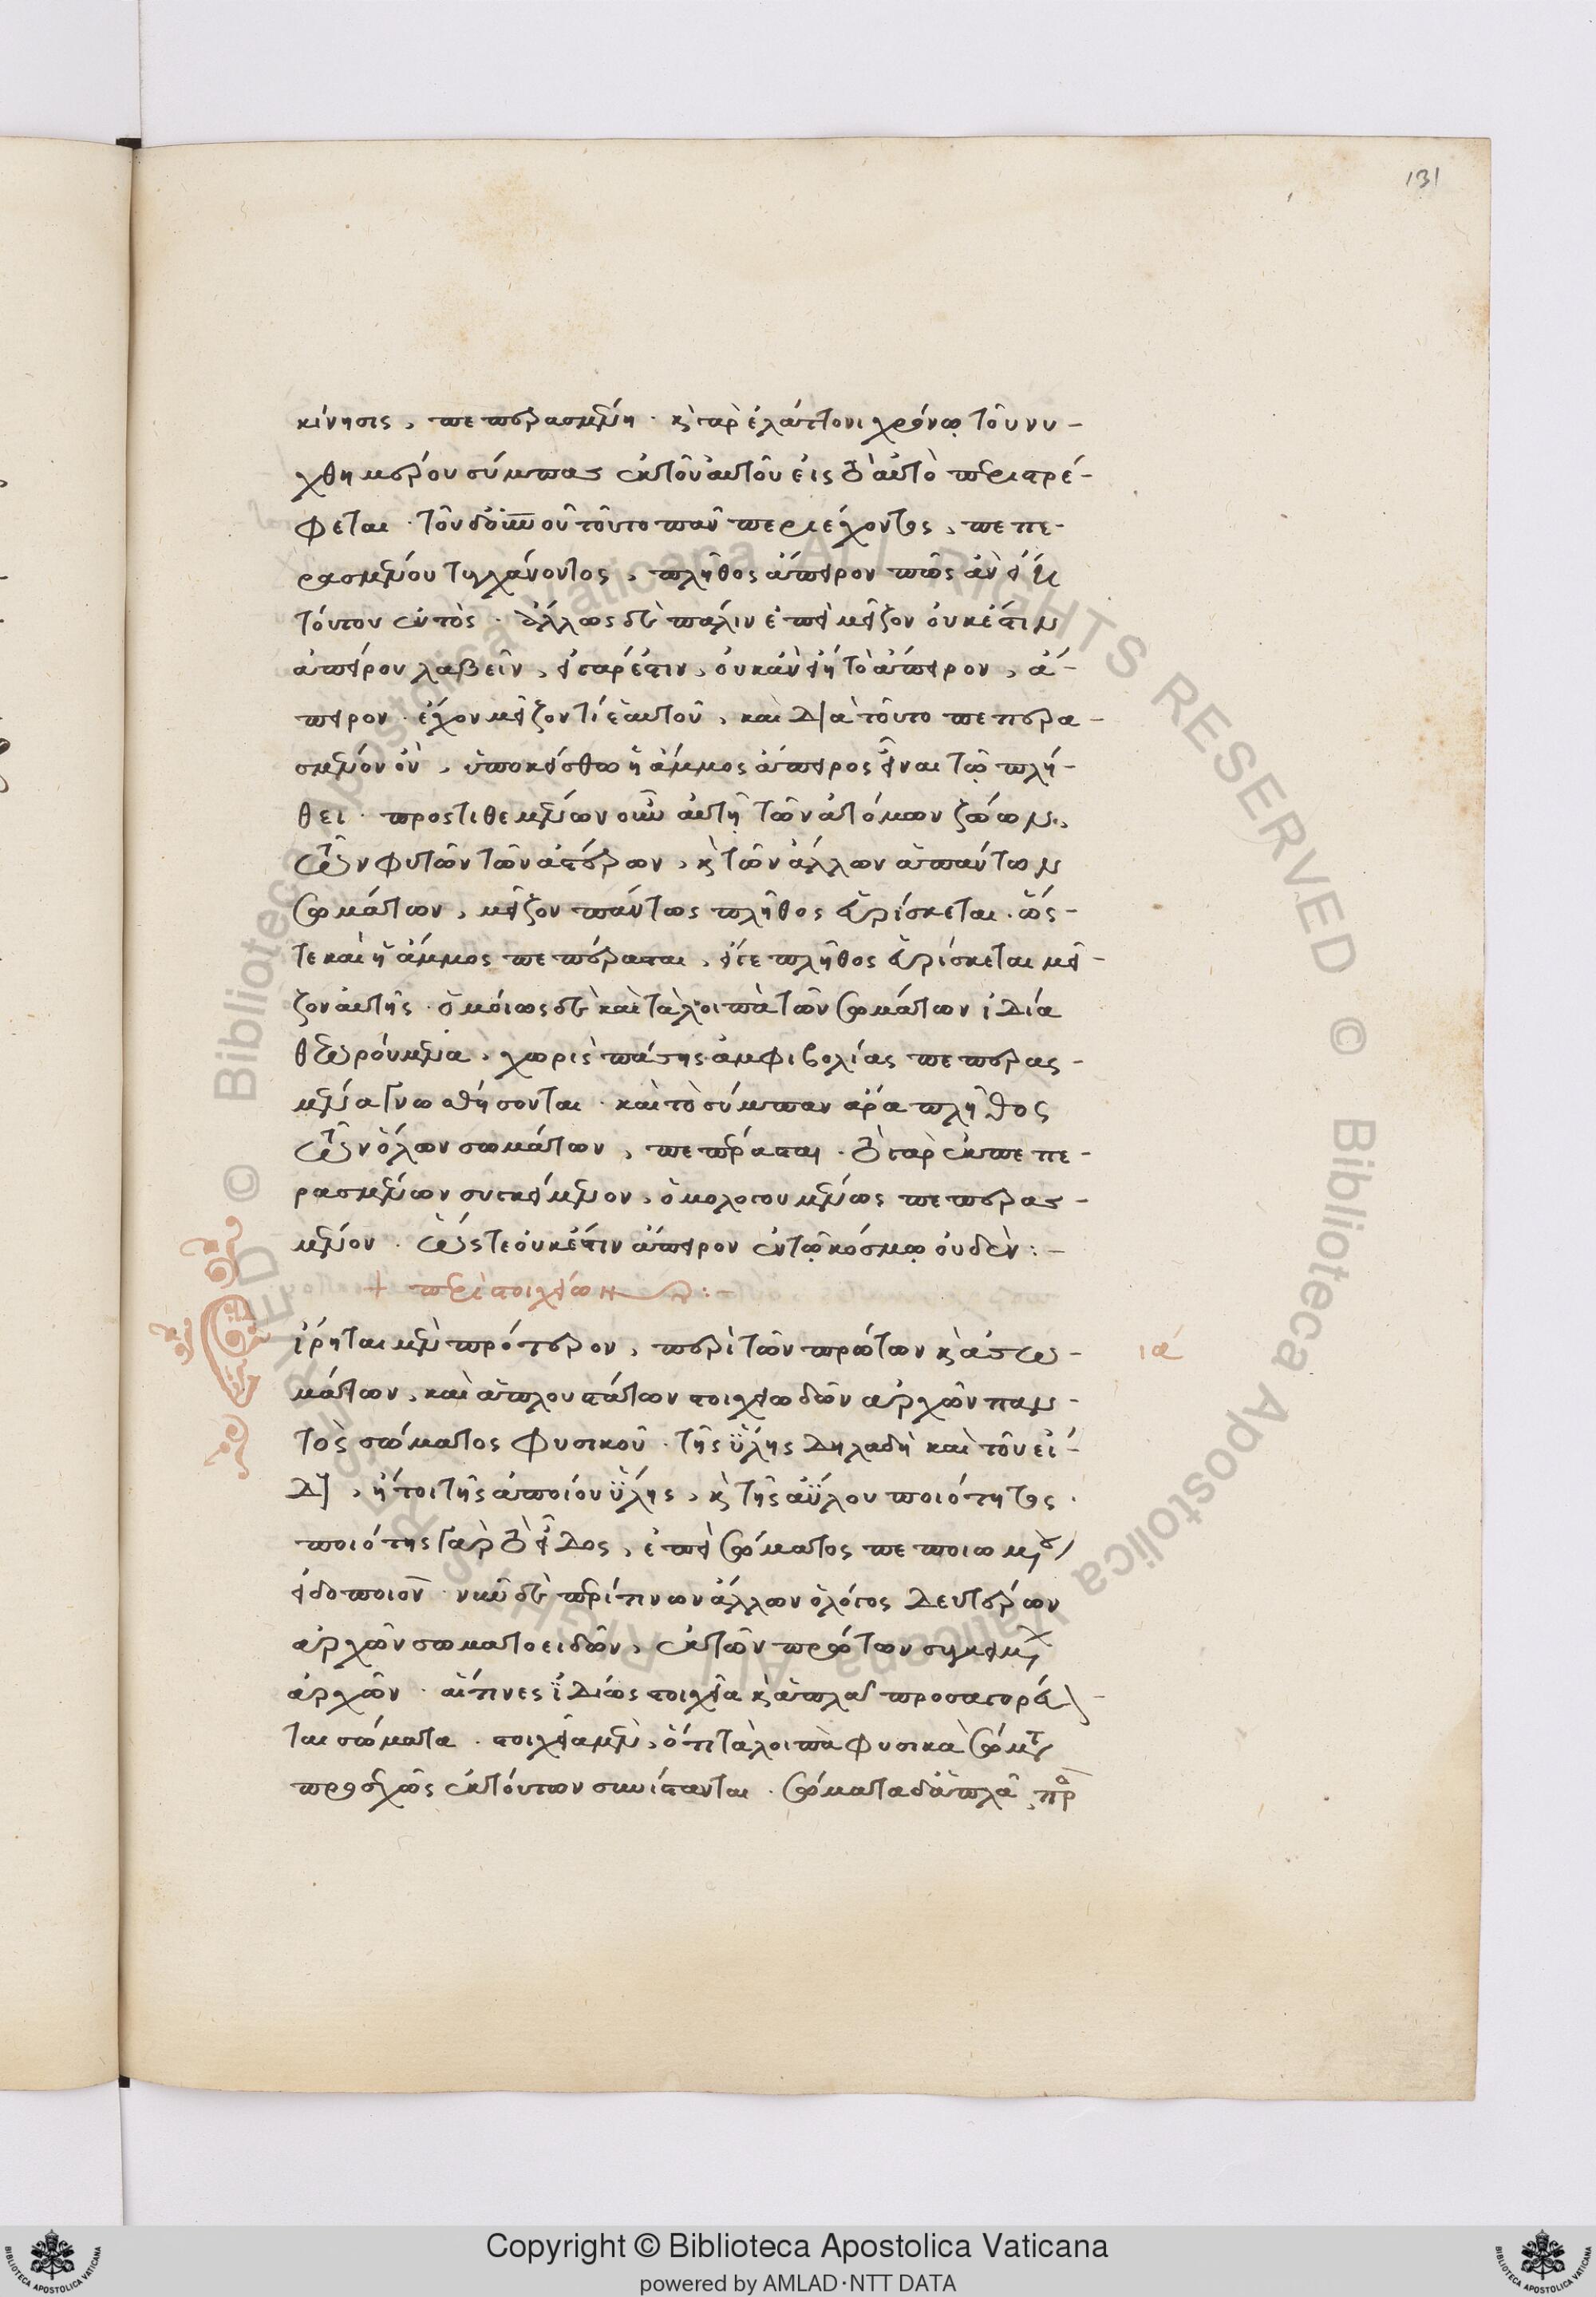 131
κίνησις, πεπερασμένη· κ̀ γὰρ ἐλάττονι χρόνω̣ τοῦ νυ-
χθημέρου σύμπας ἐκ τοῦ αὐτοῦ εἰς τὸ ἀυτὸ περιστρέ-
φεται· τοῦ δ' οὐνοῦ τοῦτο πᾶν περιέχοντος, πεπε-
ρασμένου τυγχάνοντος, πλῆθος ἄπειρον πῶς ἂν εἴη
τούτου ἐντὸς· ἄλλως δὲ πάλιν ἐπεὶ μεῖζον οὐκ ἔστιν
ἀπείρου λαβεῖν, εἰ γὰρ ἔστιν, οὐκ ἂν εἴη τὸ ἄπειρον, ἄ-
πειρον· ἔχον μεῖζόν τι ἑαυτοῦ, καὶ διὰ τοῦτο πεπερα-
σμένον ὂν, ὑποκείσθω ἡ ἄμμος ἄπειρος εἶναι τῶ̣ πλή-
θει· προστιθεμένων οὖν αὐτῆ̣ τῶν ἀτόμων ζώων,
τῶν φυτῶν τῶν ἀστέρων, κ̀ τῶν ἄλλων ἁπάντων
σωμάτων, μεῖζον πάντως πλῆθος εὑρίσκεται. ὥς-
τε καὶ ἡ ἄμμος πεπέρασται, εἴγε πλῆθος εὑρίσκεται μεῖ-
ζον αὐτῆς· ὁμοίως δὲ καὶ τὰ λοιπὰ τῶν σωμάτων ἰδία
θεωρούμενα, χωρὶς πάσης ἀμφιβολίας πεπερας-
μένα γνωσθήσονται· καὶ τὸ σύμπαν ἄρα πλῆθος
τῶν ὅλων σωμάτων, πεπέρασται· τὸ γὰρ ἐκ πεπε-
ρασμένων συγκείμενον, ὁμολογουμένως πεπερασ-
μένον· ὥστε οὐκ ἔστιν ἄπειρον ἐν τῶ̣ κόσμω̣ οὐδέν:-
+ περὶ στοιχείων:-
ἴρηται μὲν πρότερον, περὶ τῶν πρώτων κ̀ ἀσω-
ιά
μάτων, καὶ ἁπλουστάτων στοιχειωδῶν ἀρχῶν παν-
τὸς σώματος φυσικοῦ· τῆς ὕλης δηλαδὴ καὶ τοῦ εἴ-
δους, ἤτοι τῆς ἀποίου ὕλης, κ̀ τῆς ἀΰλου ποιότητος·
ποιότης γὰρ τὸ εἶδος, ἐπεὶ σώματος πεποιωμένου
εἰδοποιοῦν· νῦν δὲ περί τινων ἄλλων ὁ λόγος δευτέρων
ἀρχῶν σωματοειδῶν, ἐκ τῶν πρώτων συγκειμένων
ἀρχῶν· αἵτινες ἰδίως στοιχεῖα κ̀ ἁπλᾶ προσαγορεύον-
ται σώματα· στοιχεῖα μὲν, ὅτι τὰ λοιπὰ φυσικὰ σώματα
προσεχῶς ἐκ τούτων συνίστανται· σώματα δ' ἁπλᾶ, πρὸς